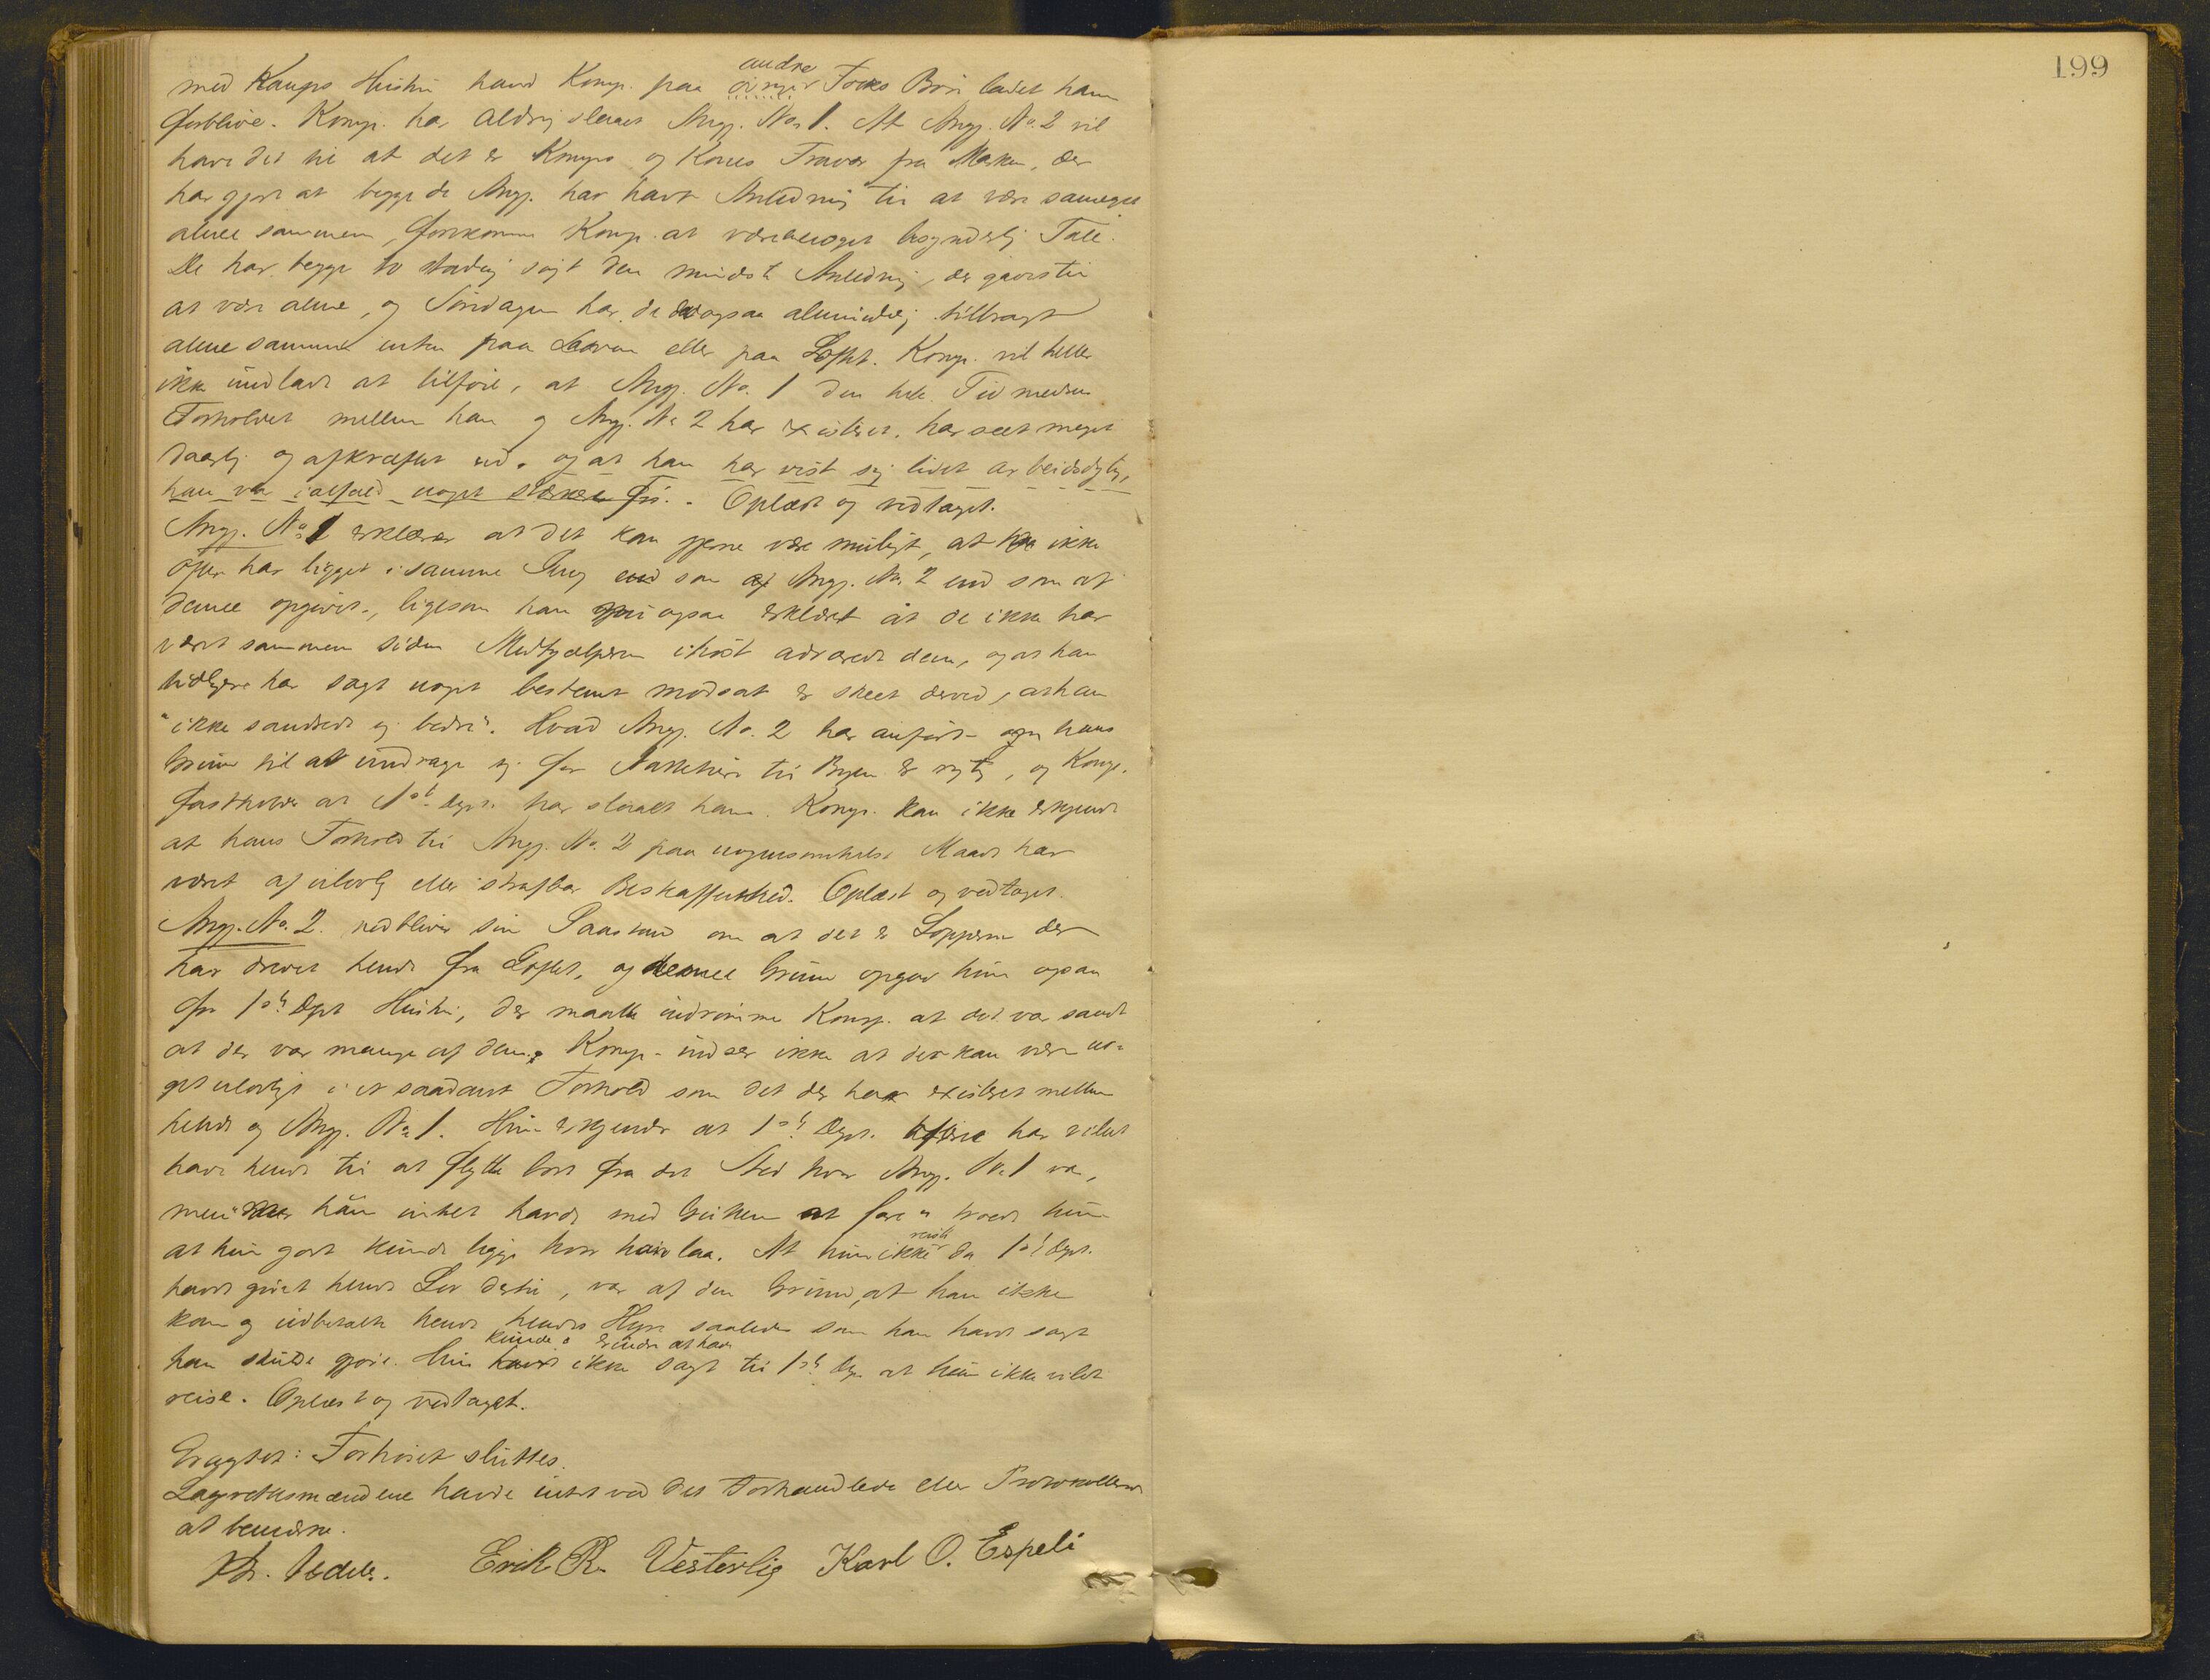 med Komps Hustru havde Komp. paa andre Folks Bøn ladet ham
forblive. Komp. har aldrig slaaet Ang. No. 1. At Ang. No. 2 vil
have det til at det er Komps og Kones Fravær fra Marken, der
har gjort at begge de Ang. har havt Anledning til at være saameget
alene sammen, forekommer Komp. at være meget besynderlig Tale.
De har begge to stadig søgt den mindste Anledning, der gaves til
at være alene, og Søndagen har de da ogsaa almindelig tilbragt
alene sammen enten paa Laaven eller paa Loftet. Komp. vil heller
ikke undlade at tilføie, at Ang. No. 1 den hele Tid medens
Forholdet mellem ham og Ang. No 2 har existeret, har seet meget
daarlig og afkræftet ud, og at han har vist sig lidet arbeidsdygtig,
han var ialfald noget stærkere før. Oplæst og vedtaget.
Ang. No. 1 erklærer at det kan gjerne være muligt, at han ikke
oftere har ligget i samme Seng som Ang. No. 2 end som af
denne opgivet, ligesom han nu ogsaa erklæret at de ikke har
været sammen siden Medhjælperen ihøst advarede dem, og at han
tidligere har sagt noget bestemt modsat er skeet derved, at han
"ikke sandsede sig bedre". Hvad Ang. No. 2 har anført om hans
Grund til at unddrage sig for til Byen er rigtig, og Komp.
fastholder at 1ste Dept. har slaaet ham. Komp. kan ikke erkjende
at hans Forhold til Ang. No. 2 paa nogensomhelst Maade har
været af ulovlig eller strafbar Beskaffenhed. Oplæst og vedtaget.
Ang. No. 2. vedbliver sin Paastand om at det er Lopperne der
har drevet hende fra Loftet, og denne Grund opgav hun ogsaa
for 1ste Dept Hustru, der maatte indrømme Komp. at det var sandt
at der var mange af dem. Komp. indser ikke at der kan være no-
get ulovligt i et saadant Forhold som det der har existeret mellem
hende og Ang. No 1. Hun erkjender at 1ste Dept. har villet
have hende til at flytte bort fra det Sted hvor Ang. No. 1 var,
men "da han intet havde med Gutten at gøre" troede hun
at hun godt kunde ligge hvor han laa. At hun ikke reiste da 1ste Dept.
havde givet hende Lov dertil, var af den Grund, at han ikke
kom og udbetalte hende hendes Hyre saaledes som han havde sagt
kunde erindre at have
han skulde gjøre. Hun ikke sagt til 1ste Dep. at hun ikke vilde
reise. Oplæst og vedtaget.
Eragtet: Forhøret sluttes.
Lagrettesmændene havde intet ved det Forhandlede eller Protokollen
at bemærke.
Erik R. Vesterlig Karl O. Espeli
199